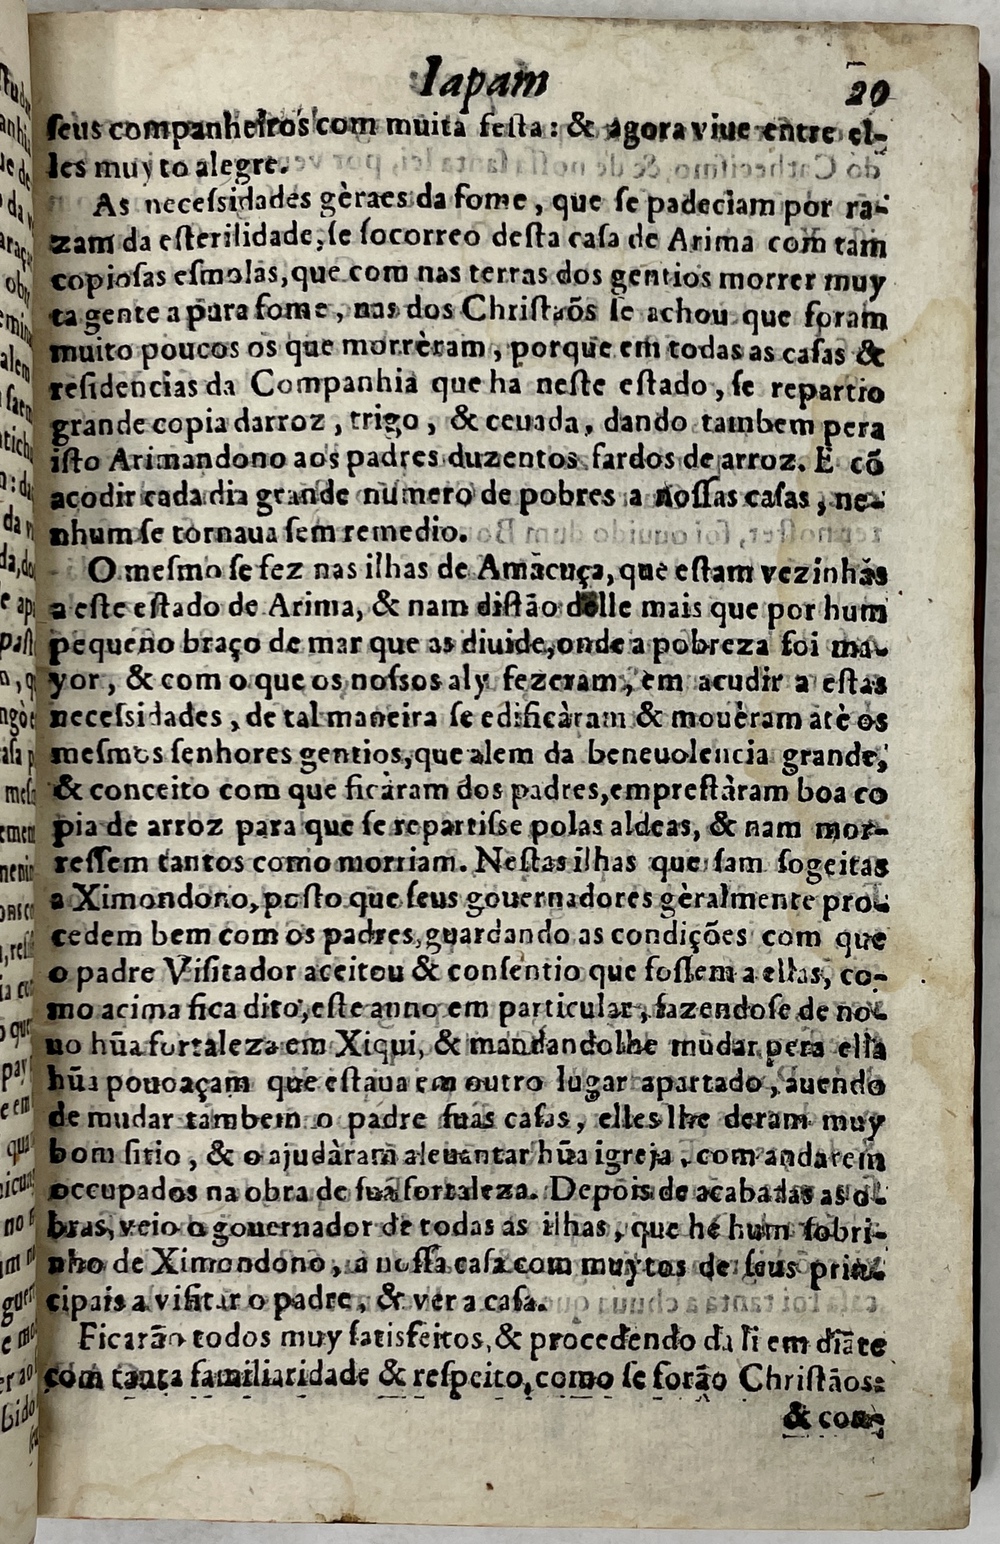 Iapam
20
ſeus companheiros com muita feſta: & agora viue entre el-
les muyto alegre.
As neceſsidades gèraes da fome, que ſe padeciam por ra-
zam da eſterilidade, ſe ſocorreo deſta caſa de Arima com tam
copioſas eſmolas, que com nas terras dos gentios morrer muy
ta gente a pura fome, nas dos Chriſtaõs ſe achou que foram
muito poucos os que morrèram, porque em todas as caſas &
reſidencias da Companhia que ha neſte eſtado, ſe repartio
grande copia darroz, trigo, & ceuada, dando tambem pera
iſto Arimandono aos padres duzentos fardos de arroz. E cõ
acodir cada dia grande numero de pobres a noſſas caſas, ne-
nhum ſe tornaua ſem remedio.
O meſmo ſe fez nas ilhas de Amacuça, que eſtam vezinhas
a eſte eſtado de Arima, & nam diſtão delle mais que por hum
pequeno braço de mar que as diuide, onde a pobreza foi ma-
yor, & com o que os noſſos aly fezeram, em acudir a eſtas
neceſsidades, de tal maneira ſe edificàram & mouèram atè os
meſmos ſenhores gentios, que alem da beneuolencia grande,
& conceito com que ficàram dos padres, empreſtàram boa co
pia de arroz para que ſe repartiſse polas aldeas, & nam mor-
reſſem tantos como morriam. Neſtas ilhas que ſam ſogeitas
a Ximondono, poſto que ſeus gouernadores gèralmente pro-
cedem bem com os padres, guardando as condições com que
o padre Viſitador aceitou & conſentio que foſſem a ellas, co-
mo acima fica dito, eſte anno em particular, fazendoſe de no-
uo hũa fortaleza em Xiqui, & mandandolhe mudar pera ella
hũa pouoaçam que eſtaua em outro lugar apartado, auendo
de mudar tambem o padre ſuas caſas, elles lhe deram muy
bom ſitio, & o ajudàram aleuantar hũa igreja, com andarem
occupados na obra de ſua fortaleza. Depois de acabadas as o-
bras, veio o gouernador de todas as ilhas, que hé hum ſobri-
nho de Ximondono, a noſſa caſa com muytos de ſeus prin-
cipais a viſitar o padre, & ver a caſa.
Ficarão todos muy ſatisfeitos, & procedendo da li em diãte
com tanta familiaridade & reſpeito, como ſe forão Chriſtãos:
& con-